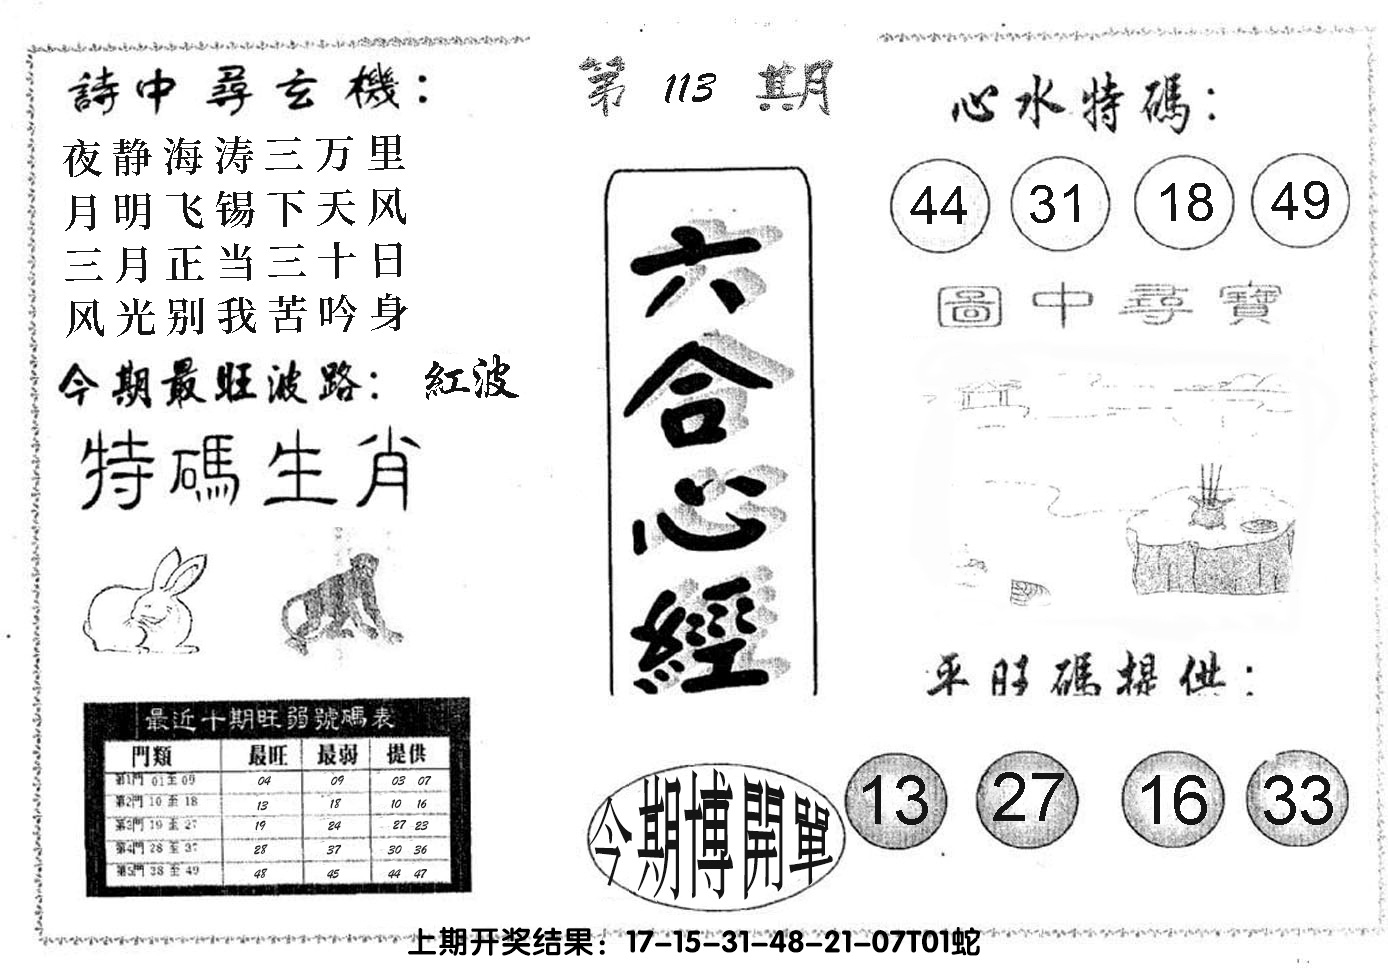 第 113 期
詩中尋玄機：
夜静海涛三万里
月明飞锡下天风
三月正当三十日
风光别我苦吟身
今期最旺波路： 紅波
特碼生肖
最近十期旺弱號碼表
門類 最旺 最弱 提供
第1門 01 至 09 04 09 03 07
第2門 10 至 18 13 18 10 16
第3門 19 至 27 19 24 27 23
第4門 28 至 37 28 37 30 36
第5門 38 至 49 48 45 44 47
六合心經
今期博開單
心水特碼：
44 31 18 49
圖中尋寶
平旺碼提供：
13 27 16 33
上期开奖结果：17-15-31-48-21-07T01蛇